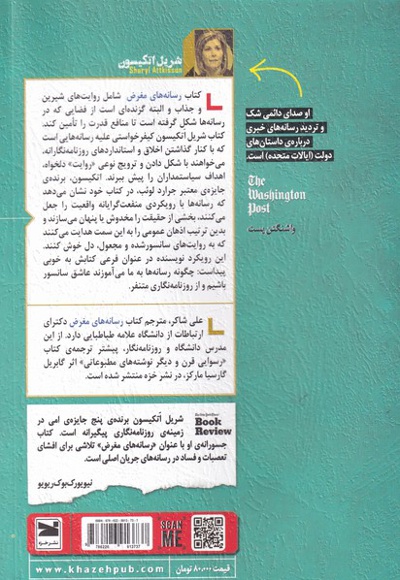 شریل اتکیسون
Sharyl Attkisson
او صدای دائمی شک
و تردید رسانه‌های خبری
درباره‌ی داستان‌های
دولت (ایالات متحده) است.
The
Washington
Post
واشنگتن پست
کتاب رسانه‌های مغرض شامل روایت‌های شیرین
و جذاب و البته گزنده‌ای است از فضایی که در
رسانه‌ها شکل گرفته است تا منافع قدرت را تأمین کند.
کتاب شریل اتکیسون کیفرخواستی علیه رسانه‌هایی است
که با کنار گذاشتن اخلاق و استانداردهای روزنامه‌نگارانه،
می‌خواهند با شکل دادن و ترویج نوعی «روایت» دلخواه،
اهداف سیاستمداران را پیش ببرند. اتکیسون، برنده‌ی
جایزه‌ی معتبر جرارد لوئب، در کتاب خود نشان می‌دهد
که رسانه‌ها با رویکردی منفعت‌گرایانه واقعیت را جعل
می‌کنند، بخشی از حقیقت را مخدوش یا پنهان می‌سازند و
بدین ترتیب اذهان عمومی را به این سمت هدایت می‌کنند
که به روایت‌های سانسورشده و مجعول، دل خوش کنند.
این رویکرد نویسنده در عنوان فرعی کتابش به خوبی
پیداست: چگونه رسانه‌ها به ما می‌آموزند عاشق سانسور
باشیم و از روزنامه‌نگاری متنفر.
علی شاکر، مترجم کتاب رسانه‌های مغرض دکترای
ارتباطات از دانشگاه علامه طباطبایی دارد. از این
مدرس دانشگاه و روزنامه‌نگار، پیشتر ترجمه‌ی کتاب
«رسوایی قرن و دیگر نوشته‌های مطبوعاتی» اثر گابریل
گارسیا مارکز، در نشر خزه منتشر شده است.
Book
Review
شریل اَتکیسون برنده‌ی پنج جایزه‌ی امی در
زمینه‌ی روزنامه‌نگاری پیگیرانه است. کتاب
جسورانه‌ی او با عنوان «رسانه‌های مغرض» تلاشی برای افشای
تعصبات و فساد در رسانه‌های جریان اصلی است.
نیویورک‌بوک‌ریویو
SCAN
ME
نشر خزه
www.khazehpub.com
قیمت ۸۰,۰۰۰ تومان